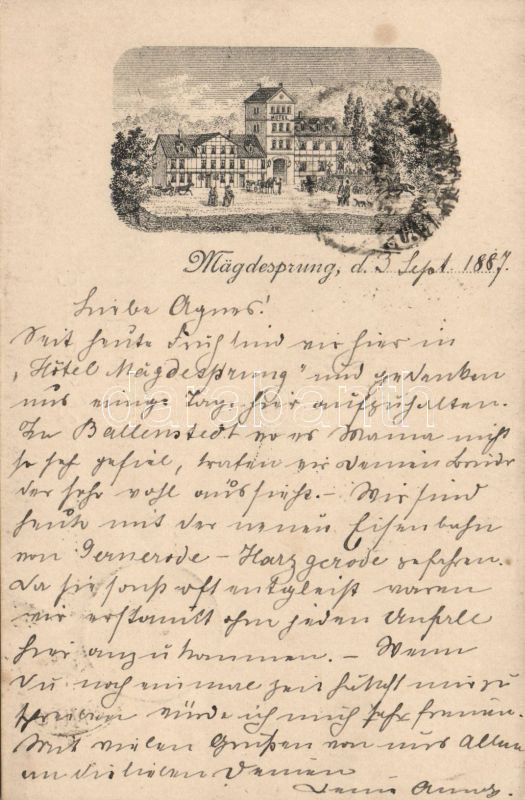 HOTEL
Mägdesprung, d. 3 Sept. 1887.
Liebe Agnes!
Seit heute Früh sind wir hier in
„Hôtel Mägdesprung" und gedenken
uns einige Tage hier aufzuhalten.
In Ballenstedt wo es Mama nicht
so sehr gefiel, trafen wir Deinen Bruder
der sehr wohl aussieht. – Wir sind
heute mit der neuen Eisenbahn
von Gernrode – Harzgerode gefahren.
Da sie sonst oft entgleist waren
wir erstaunt ohne jeden Unfall
hier anzukommen. – Wenn
Du noch einmal Zeit hättest mir zu
schreiben würde ich mich sehr freuen.
Mit vielen Grüßen von uns Allen
an die lieben Deinen
Deine
darabanth